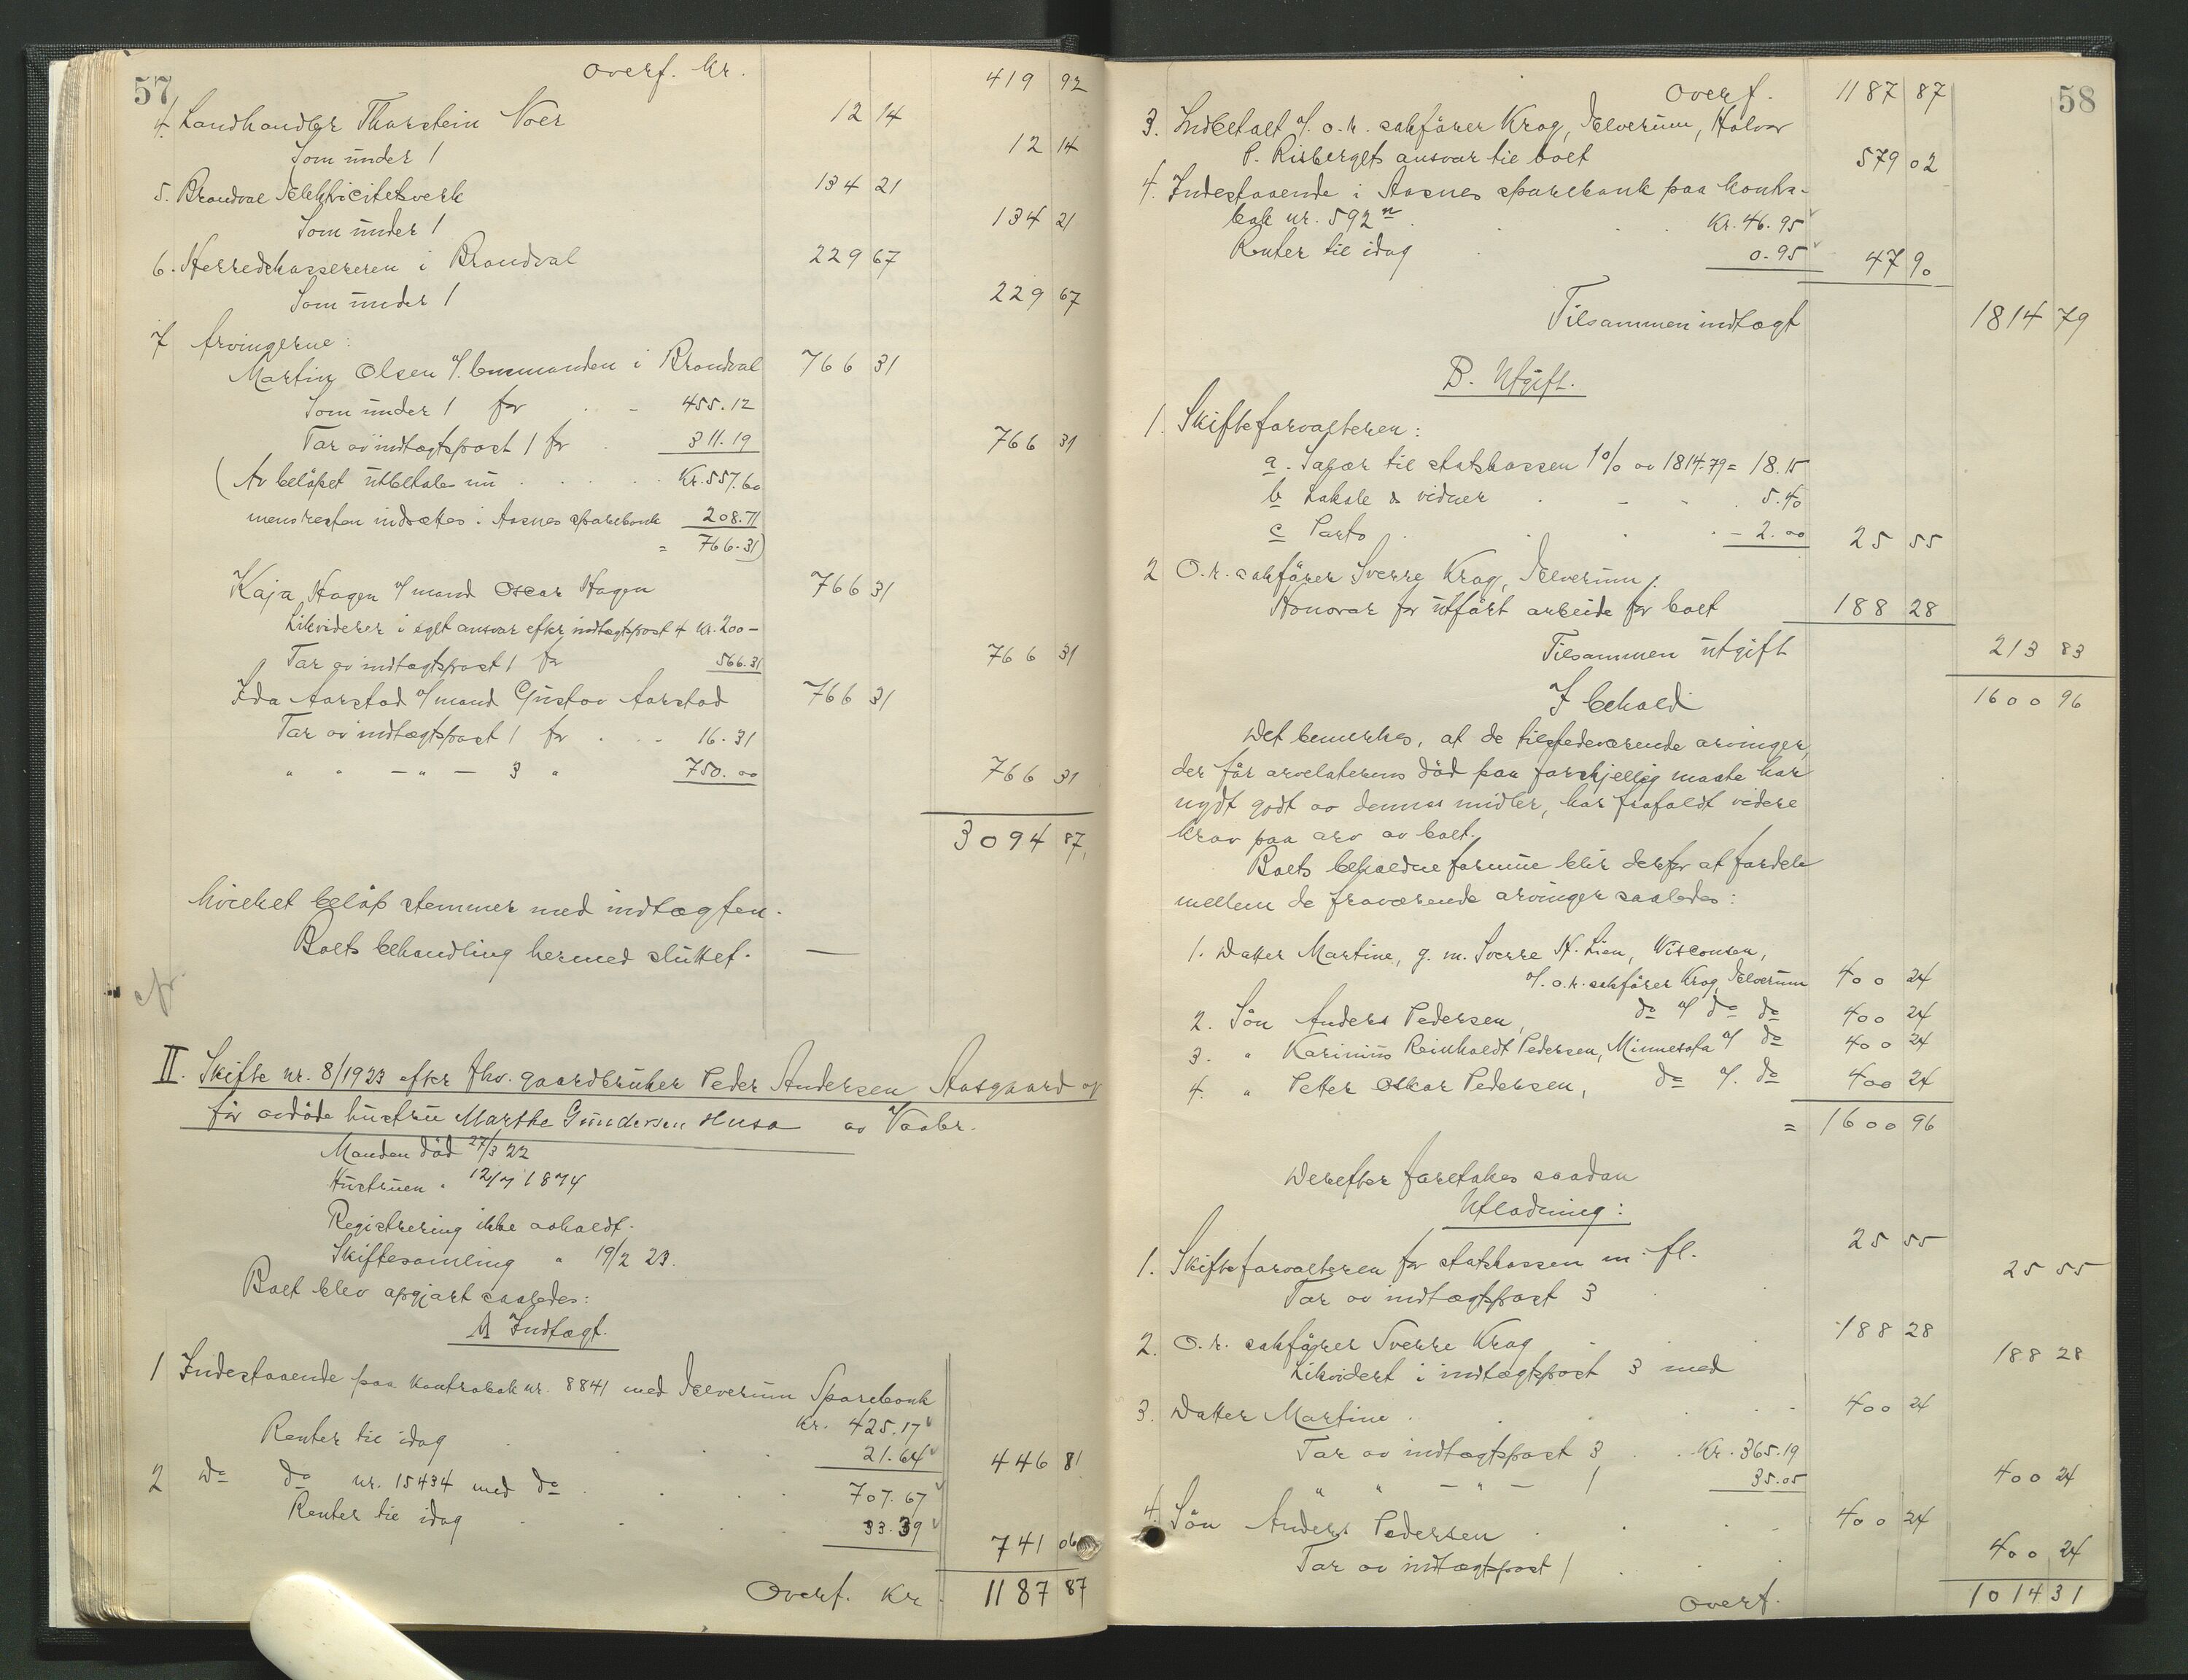 57
Overf. kr. 419 92
4. Landhandler Thorstein Noer 12 14
Som under 1 12 14
5. Brandval Elektricitetsverk 134 21
Som under 1 134 21
6. Herredskassereren i Brandval 229 67
Som under 1 229 67
7 Arvingerne:
Martin Olsen v/ lensmanden i Brandval 766 31
Som under 1 for 455.12
Tar av indtægtspost 1 for 311.19 766 31
(Av beløpet utbetales nu Kr. 557.60
mens resten indsættes i Aasnes sparebank 208.71
= 766.31)
Kaja Hagen v/ mand Oscar Hagen 766 31
Likviderer i eget ansvar efter indtægtspost 4 kr. 200 –
Tar av indtægtspost 1 for 566.31 766 31
Ida Aarstad v/ mand Gustav Aarstad 766 31
Tar av indtægtspost 1 for 16.31
" " — " — 3 " 750.00 766 31
3094 87
hvilket beløp stemmer med indtægten.
Boets behandling hermed sluttet. —
II. Skifte nr. 8/1923 efter fhv. gaardbruker Peder Andersen Aasgaard og
før avdøde hustru Marthe Gundersen Husa av Vaaler.
Manden død 27/3 22
Hustruen " 12/7 1874
Registrering ikke avholdt.
Skiftesamling " 19/2 23.
Boet blev opgjort saaledes:
A Indtægt.
1 Indestaaende paa kontrabok nr. 8841 med Elverum Sparebank
kr. 425.17
Renter til idag 21.64 446 81
2 Do do nr. 15434 med do 707.67
Renter til idag 33.39 741 06
Overf. Kr. 1187 87
58
Overf. 1187 87
3. Indbetalt v/ o.r. sakfører Krag, Elverum, Halvor
P. Risbergets ansvar til boet 579 02
4. Indestaaende i Aasnes sparebank paa kontra-
bok nr. 592 n Kr. 46.95
Renter til idag 0.95 47 90
Tilsammen indtægt 1814 79
B. Utgift.
1. Skifteforvalteren:
a. Salær til statskassen 1% av 1814.79 = 18.15
b Lokale & vidner 5.40
c Porto - 2.00 25 55
2 O.r. sakfører Sverre Krag, Elverum,
Honorar for utført arbeide for boet 188 28
Tilsammen utgift 213 83
I behold 1600 96
Det bemerkes, at de tilstedeværende arvinger,
der før arvelaterens død paa forskjellig maate har
nydt godt av dennes midler, har frafaldt videre
krav paa arv av boet.
Boets beholdne formue blir derfor at fordele
mellem de fraværende arvinger saaledes:
1. Datter Martine, g. m. Sverre H. Lien, Wisconsen,
v/ o.r. sakfører Krag, Elverum 400 24
2. Søn Anders Pedersen, do v/ do do 400 24
3. " Karinius Reinholdt Pedersen, Minnesota v/ do 400 24
4. " Petter Oskar Pedersen, do v/ do 400 24
= 1600 96
Derefter foretakes saadan
Utlodning:
1. Skifteforvalteren for statskassen m. fl. 25 55
Tar av indtægtspost 3 25 55
2. O.r. sakfører Sverre Krag 188 28
Likvidert i indtægtspost 3 med 188 28
3. Datter Martine 400 24
Tar av indtægtspost 3 Kr. 365.19
" " — " — 1 35.05 400 24
4. Søn Anders Pedersen 400 24
Tar av indtægtspost 1 400 24
Overf. 1014 31